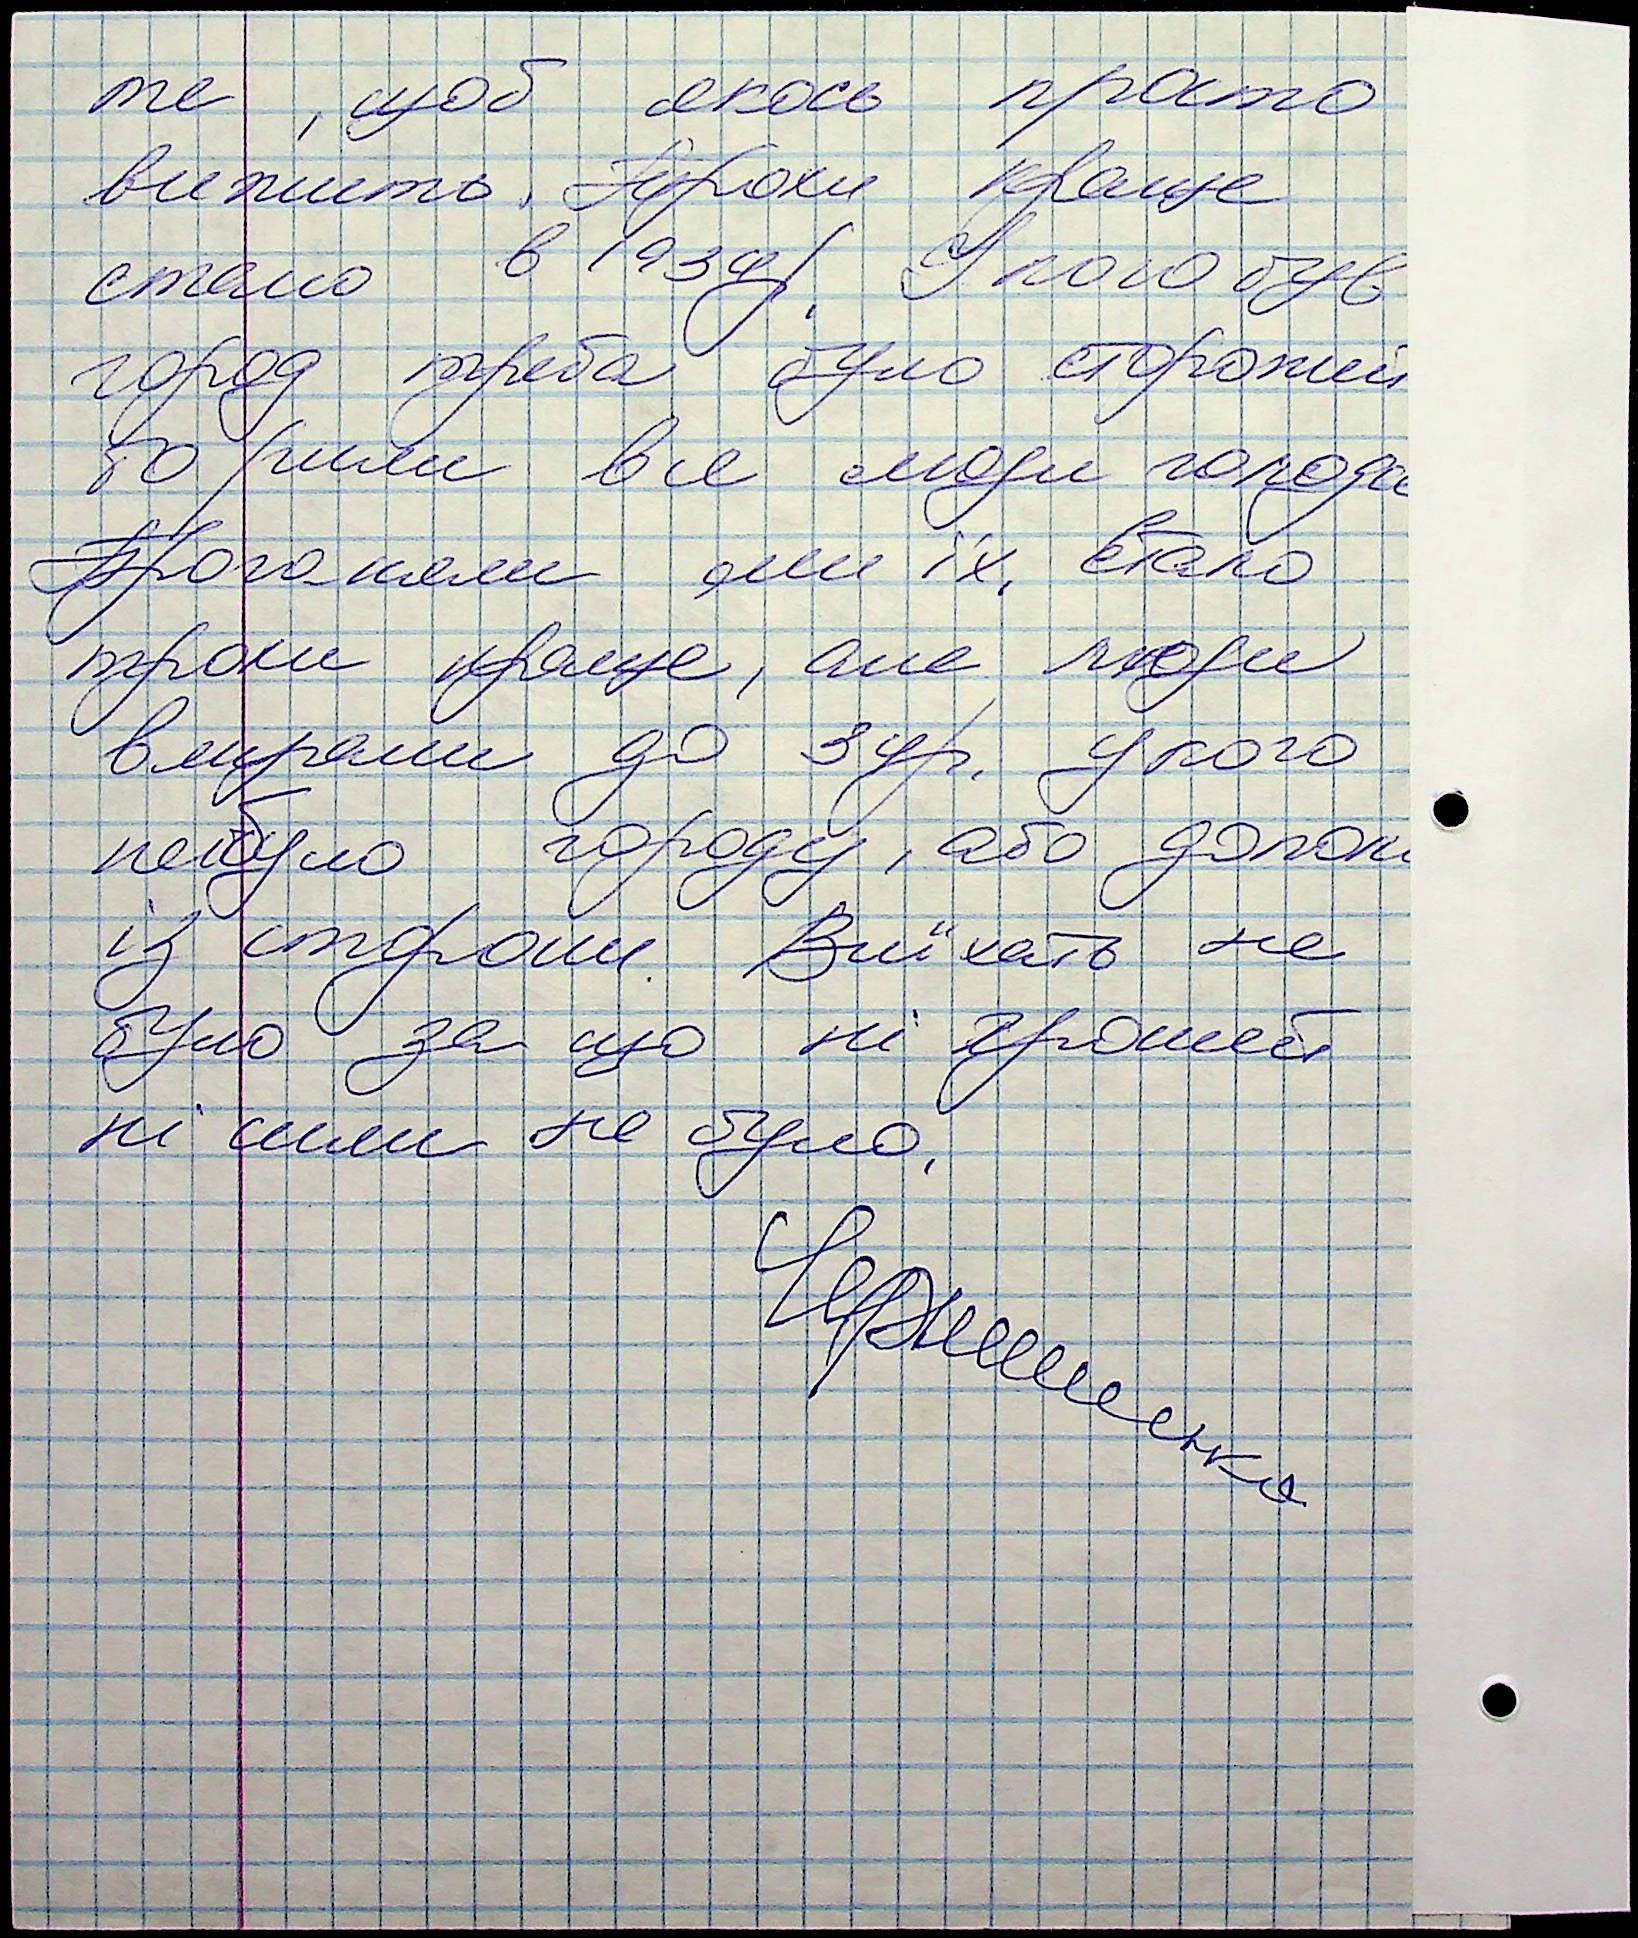 те, щоб якось просто
вижить. Трохи краще
стало в 1934р. У кого був
город треба було сторожи
бо йшли все люди голодн
Проганяли ми їх. Стало
трохи краще, але люди
вмирали до 34р. у кого
небуло городу, або допом
із сторони. Виїхать не
було за що ні грошей
ні сили не було.